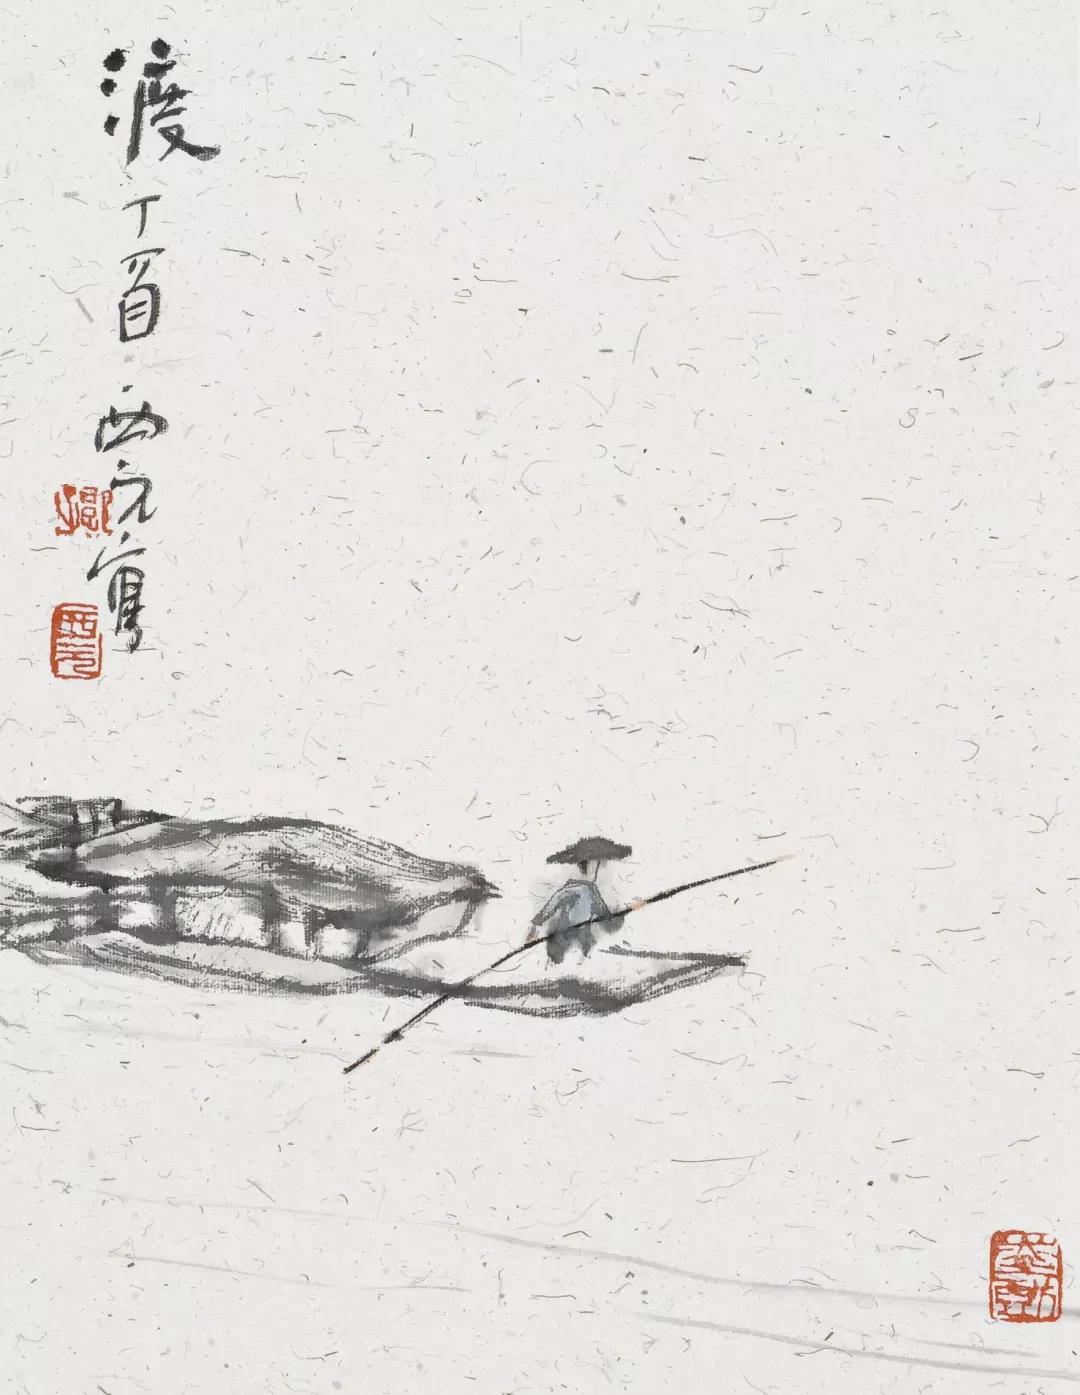 渡 丁酉 西元寫
西元